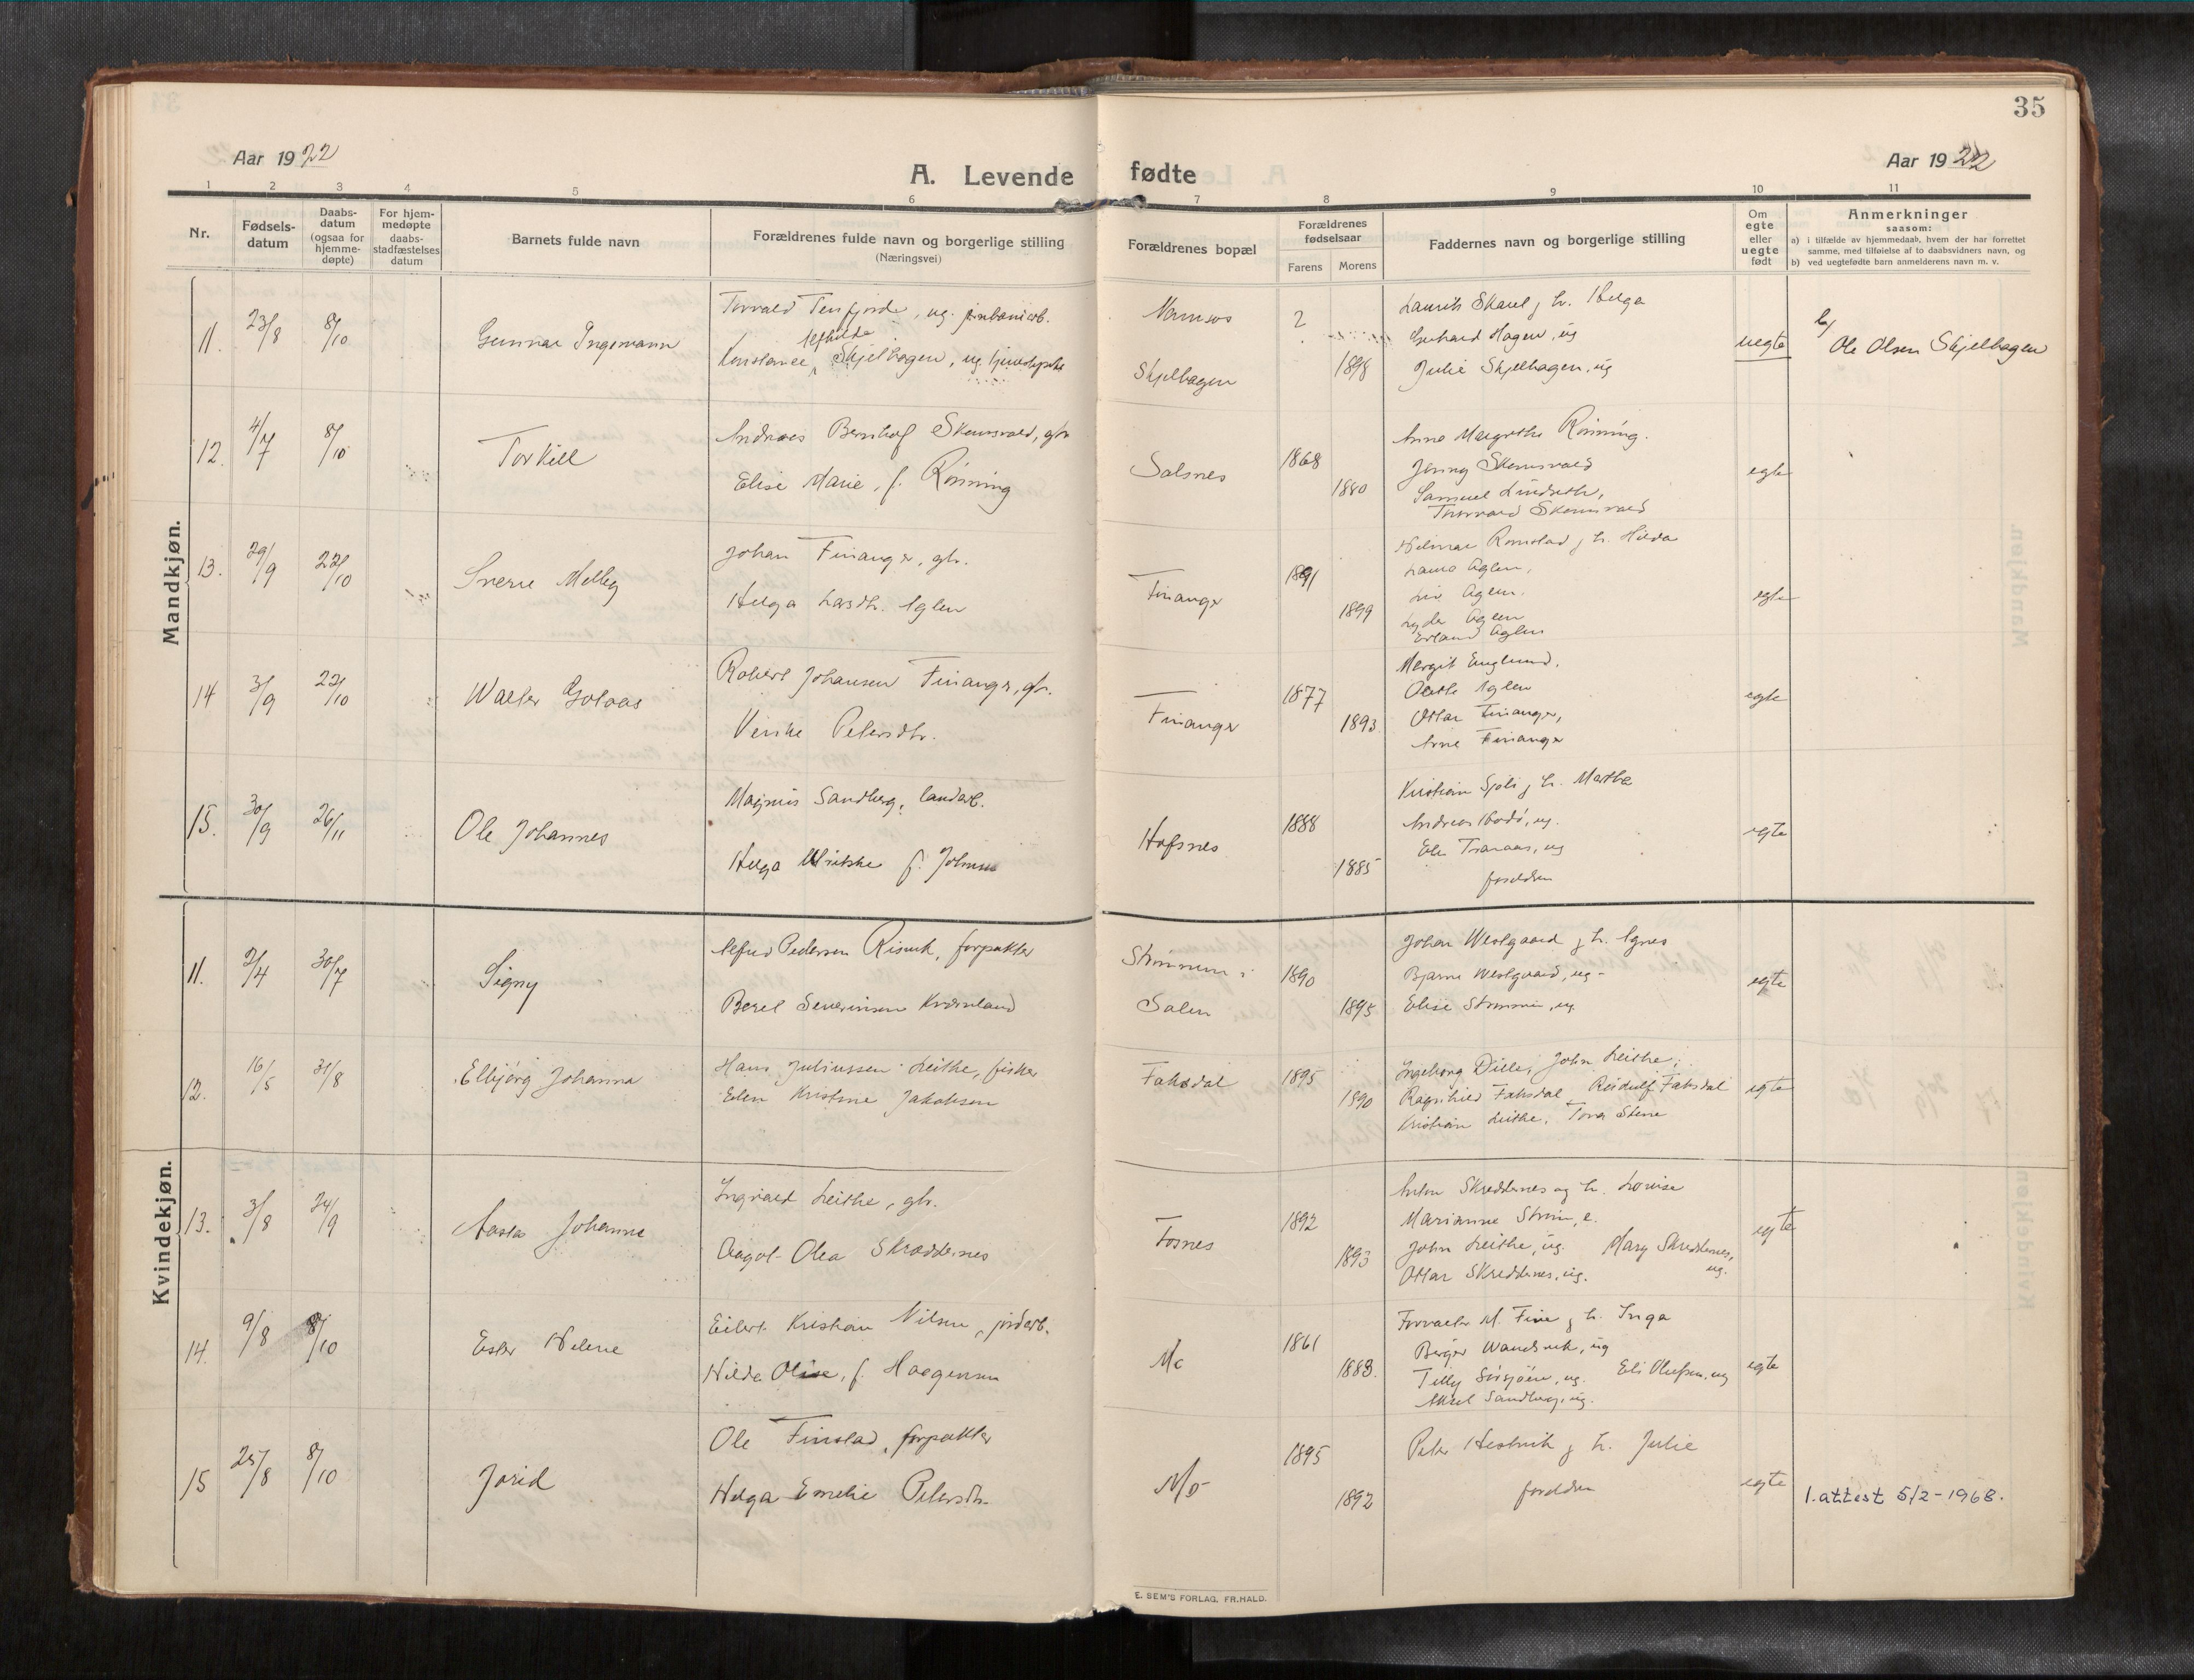 35
Aar 1922
A. Levende fødte
Aar 1922
1 2 3 4 5 6 7 8 9 10 11
Nr.
Fødsels-datum
Daabs-datum (ogsaa for hjemme-døpte)
For hjem-medøpte daabs-stadfæstelses datum
Barnets fulde navn
Forældrenes fulde navn og borgerlige stilling
(Næringsvei)
Forældrenes bopæl
Forældrenes fødselsaar
Farens Morens
Faddernes navn og borgerlige stilling
Om egte eller uegte født
Anmerkninger
saasom:
a) i tilfælde av hjemmedaab, hvem der har forrettet
samme, med tilføielse af to daabsvidners navn, og
b) ved uegtefødte barn anmelderens navn m. v.
Mandkjøn.
11. 23/8 8/10 Gunnar Ingemann
Torvald Tenfjord, ug.
Skjelbagen, ug.
Namsos
Skjelbagen
2
1898
Skavl j h. Helga
Hagen, ug
Julie Skjelbagen, ug
uegte
b/ Ole Olsen Skjelbagen
12. 4/7 8/10 Torkill
Andreas Skomsvold, gbr
Elise Marie, f. Rønning
Salsnes
1868
1880
Anna Margrethe Rønning.
Jenny Skomsvold
Samuel Lindseth,
Thorvald Skomsvold
egte
13. 29/9 22/10 Sverre Melby
Johan Finanger, gbr.
Helga Larsdtr. Aglen
Finanger
1891
1899
Hilmar Romstad j h. Hilda
Aglen,
Aglen.
Lyder Aglen
Erland Aglen
egte
14 3/9 22/10 Walter Golaas
Robert Johansen Finanger, gbr.
Petersdtr.
Finanger
1877
1893
Margit Englund,
Aglen
Ottar Finanger,
Arne Finanger
egte
15. 30/9 26/11 Ole Johannes
Magnus Sandberg, landarb.
Helga Ulrikke f. Johnsen
Hofsnes
1888
1885
Kristian Sjøli j h. Martha
Andreas
Tranaas, ug
forældren
egte
Kvindekjøn.
11. 2/4 30/7 Signy
Alfred Pedersen Risvik, forpakter
Beret Severinsen Kvernland
Strømmen i
Salen
1890
1895
Johan Westgaard j h. Agnes
Bjarne Westgaard, ug.
Elise Strømmen, ug.
egte
12. 16/5 31/8 Elbjørg Johanna
Hans Juliussen Leithe, fisker
Elen Kristine Jakobsen
Faksdal
1895
1890
Ingeborg Dille, John Leithe,
Ragnhild Faksdal Reidulf Faksdal
Kristian Leithe, Tora Stene
egte
13. 3/8 24/9 Aasta Johanne
Ingvald Leithe, gbr.
Aagot Olea Skræddernes
Fosnes
1892
1893
Anton Skreddernes og h. Louise
Marianne Strøm, e.
John Leithe, ug. Mary Skreddernes,
Ottar Skreddernes, ug. ug.
egte
14. 9/8 8/10 Ester Helene
Eilert Kristian Nilsen, jordarb.
Hilda Olise, f. Haagensen
Mo
1861
1883.
M. Fine j h. Inga
Birger Wandsvik, ug
Tilly Sørsjøen, ug. Eli Olufsen, ug
Aksel Sandberg, ug.
egte
15 25/8 8/10 Jorid
Ole Finstad, forpakter
Helga Emelie Petersdtr.
Mo
1895
1892
Peter Hestvik j h. Julie
forældren
egte
1. attest 5/2-1968.
E. SEM'S FORLAG, FR.HALD.